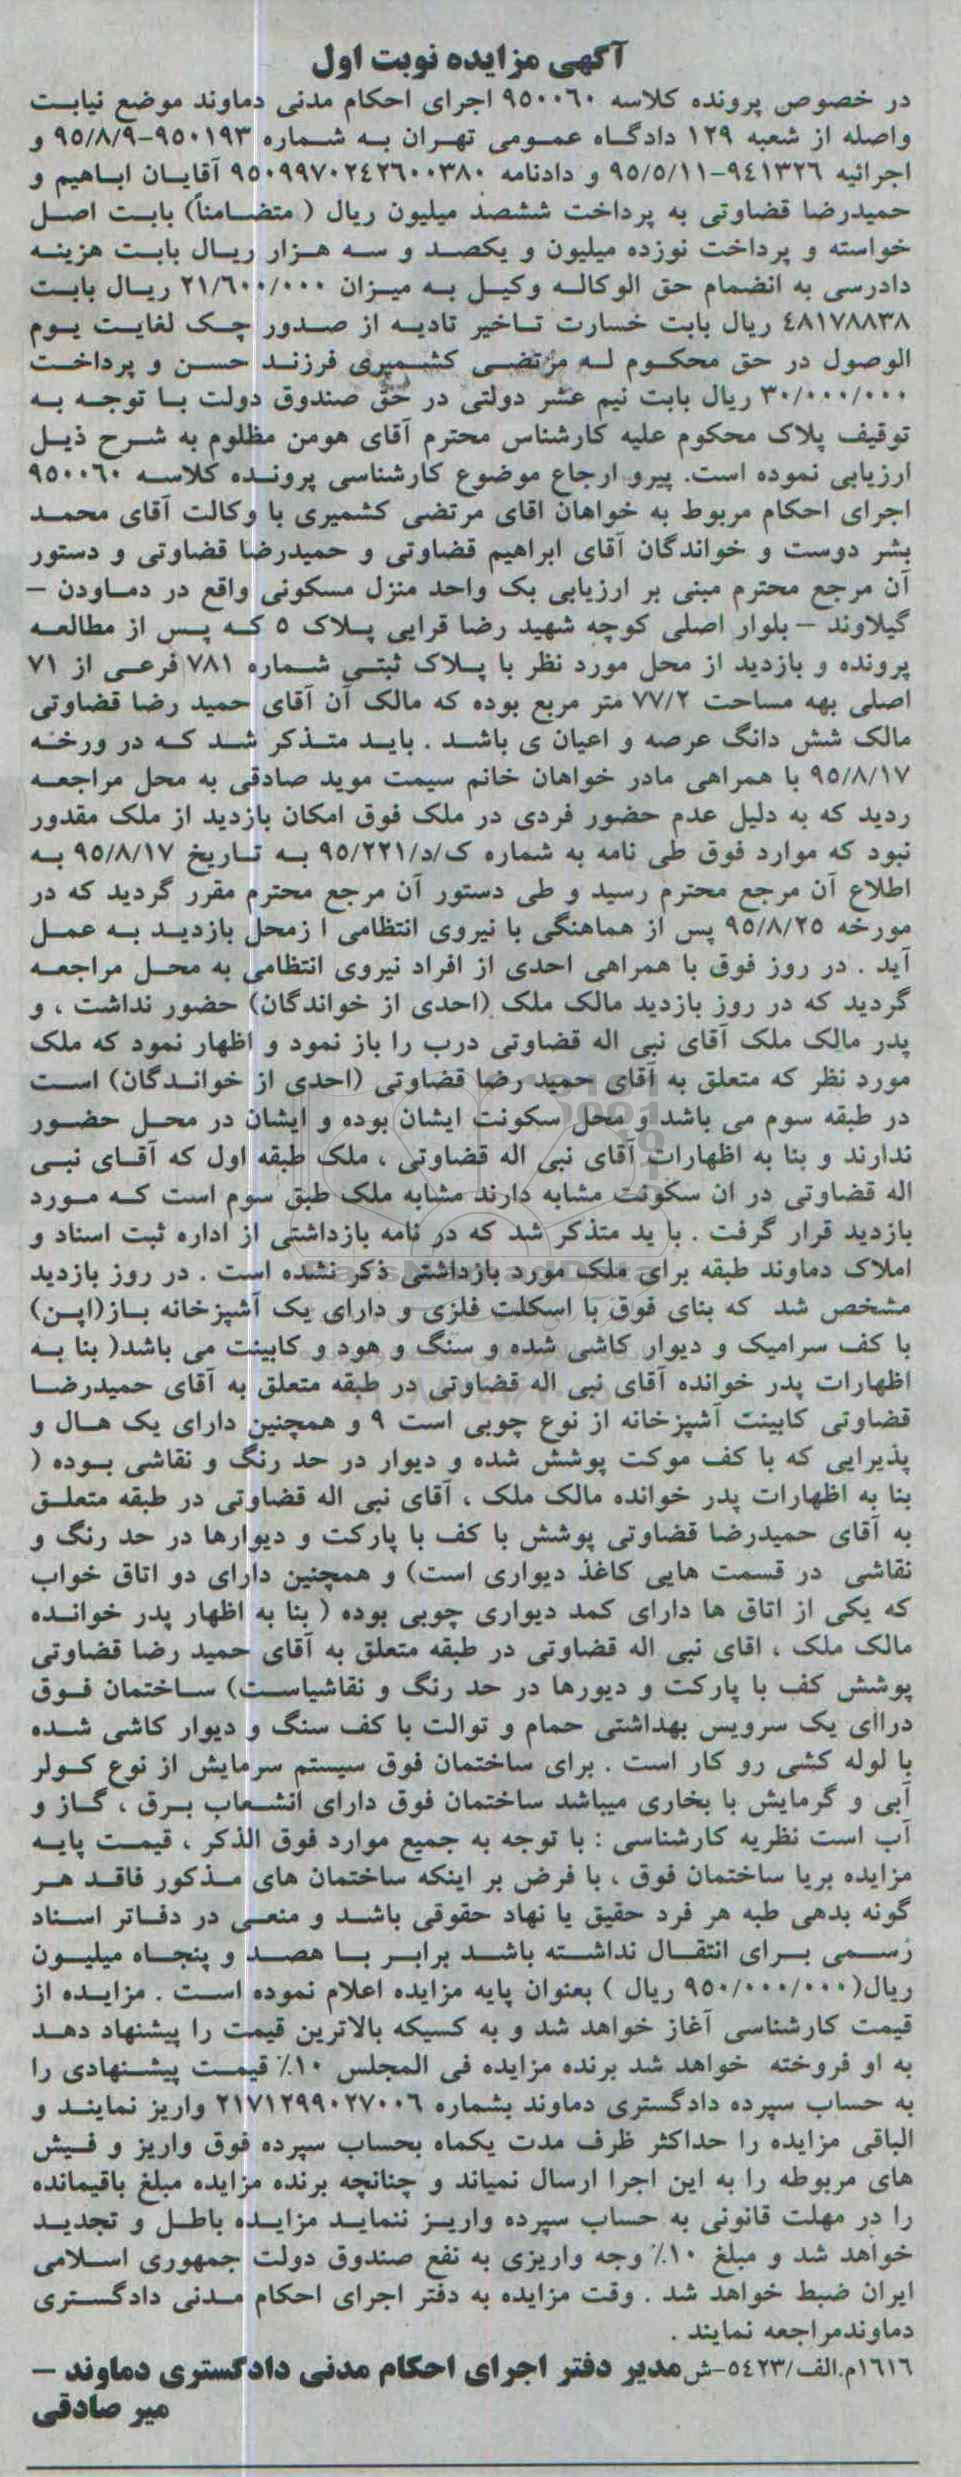 آگهی مزایده نوبت اول
در خصوص پرونده کلاسه ۹۵۰۰۶۰ اجرای احکام مدنی دماوند موضع نیابت
واصله از شعبه ۱۲۹ دادگاه عمومی تهران به شماره ۹۵۰۱۹۳-۹۵/۸/۹ و
اجرائیه ۹٤۱۳۲٦-۹۵/۵/۱۱ و دادنامه ۹۵۰۹۹۷۰۲٤۲٦۰۰۳۸۰ آقایان اباهیم و
حمیدرضا قضاوتی به پرداخت ششصد میلیون ریال ( متضامناً) بابت اصل
خواسته و پرداخت نوزده میلیون و یکصد و سه هزار ریال بابت هزینه
دادرسی به انضمام حق الوکاله وکیل به میزان ۲۱/٦۰۰/۰۰۰ ریال بابت
٤۸۱۷۸۸۳۸ ریال بابت خسارت تاخیر تادیه از صدور چک لغایت یوم
الوصول در حق محکوم له مرتضی کشمیری فرزند حسن و پرداخت
۳۰/۰۰۰/۰۰۰ ریال بابت نیم عشر دولتی در حق صندوق دولت با توجه به
توقیف پلاک محکوم علیه کارشناس محترم آقای هومن مظلوم به شرح ذیل
ارزیابی نموده است. پیرو ارجاع موضوع کارشناسی پرونده کلاسه ۹۵۰۰٦۰
اجرای احکام مربوط به خواهان اقای مرتضی کشمیری با وکالت آقای محمد
بشر دوست و خواندگان آقای ابراهیم قضاوتی و حمیدرضا قضاوتی و دستور
آن مرجع محترم مبنی بر ارزیابی بک واحد منزل مسکونی واقع در دماودن –
گیلاوند – بلوار اصلی کوچه شهید رضا قرایی پلاک ۵ که پس از مطالعه
پرونده و بازدید از محل مورد نظر با پلاک ثبتی شماره ۷۸۱ فرعی از ۷۱
اصلی بهه مساحت ۷۷/۲ متر مربع بوده که مالک آن آقای حمید رضا قضاوتی
مالک شش دانگ عرصه و اعیان ی باشد . باید متذکر شد که در ورخه
۹۵/۸/۱۷ با همراهی مادر خواهان خانم سیمت موید صادقی به محل مراجعه
ردید که به دلیل عدم حضور فردی در ملک فوق امکان بازدید از ملک مقدور
نبود که موارد فوق طی نامه به شماره ک/د/۹۵/۲۲۱ به تاریخ ۹۵/۸/۱۷ به
اطلاع آن مرجع محترم رسید و طی دستور آن مرجع محترم مقرر گردید که در
مورخه ۹۵/۸/۲۵ پس از هماهنگی با نیروی انتظامی ا زمحل بازدید به عمل
آید . در روز فوق با همراهی احدی از افراد نیروی انتظامی به محل مراجعه
گردید که در روز بازدید مالک ملک (احدی از خواندگان) حضور نداشت ، و
پدر مالک ملک آقای نبی اله قضاوتی درب را باز نمود و اظهار نمود که ملک
مورد نظر که متعلق به آقای حمید رضا قضاوتی (احدی از خواندگان) است
در طبقه سوم می باشد و محل سکونت ایشان بوده و ایشان در محل حضور
ندارند و بنا به اظهارات آقای نبی اله قضاوتی ، ملک طبقه اول که آقای نبی
اله قضاوتی در ان سکونت مشابه دارند مشابه ملک طبق سوم است که مورد
بازدید قرار گرفت . با ید متذکر شد که در نامه بازداشتی از اداره ثبت اسناد و
املاک دماوند طبقه برای ملک مورد بازداشتی ذکر نشده است . در روز بازدید
مشخص شد که بنای فوق با اسکلت فلزی و دارای یک آشپزخانه باز(اپن)
با کف سرامیک و دیوار کاشی شده و سنگ و هود و کابینت می باشد( بنا به
اظهارات پدر خوانده آقای نبی اله قضاوتی در طبقه متعلق به آقای حمیدرضا
قضاوتی کابینت آشپزخانه از نوع چوبی است ۹ و همچنین دارای یک هال و
پذیرایی که با کف موکت پوشش شده و دیوار در حد رنگ و نقاشی بوده (
بنا به اظهارات پدر خوانده مالک ملک ، آقای نبی اله قضاوتی در طبقه متعلق
به آقای حمیدرضا قضاوتی پوشش با کف با پارکت و دیوارها در حد رنگ و
نقاشی در قسمت هایی کاغذ دیواری است) و همچنین دارای دو اتاق خواب
که یکی از اتاق ها دارای کمد دیواری چوبی بوده ( بنا به اظهار پدر خوانده
مالک ملک ، اقای نبی اله قضاوتی در طبقه متعلق به آقای حمید رضا قضاوتی
پوشش کف با پارکت و دیورها در حد رنگ و نقاشیاست) ساختمان فوق
دراای یک سرویس بهداشتی حمام و توالت با کف سنگ و دیوار کاشی شده
با لوله کشی رو کار است . برای ساختمان فوق سیستم سرمایش از نوع کولر
آبی و گرمایش با بخاری میباشد ساختمان فوق دارای انشعاب برق ، گاز و
آب است نظریه کارشناسی : با توجه به جمیع موارد فوق الذکر ، قیمت پایه
مزایده بریا ساختمان فوق ، با فرض بر اینکه ساختمان های مذکور فاقد هر
گونه بدهی طبه هر فرد حقیق یا نهاد حقوقی باشد و منعی در دفاتر اسناد
رسمی برای انتقال نداشته باشد برابر با هصد و پنجاه میلیون
ریال(۹۵۰/۰۰۰/۰۰۰ ریال ) بعنوان پایه مزایده اعلام نموده است . مزایده از
قیمت کارشناسی آغاز خواهد شد و به کسیکه بالاترین قیمت را پیشنهاد دهد
به او فروخته خواهد شد برنده مزایده فی المجلس ۱۰٪ قیمت پیشنهادی را
به حساب سپرده دادگستری دماوند بشماره ۲۱۷۱۲۹۹۰۲۷۰۰٦ واریز نمایند و
الباقی مزایده را حداکثر ظرف مدت یکماه بحساب سپرده فوق واریز و فیش
های مربوطه را به این اجرا ارسال نمیاند و چنانچه برنده مزایده مبلغ باقیمانده
را در مهلت قانونی به حساب سپرده واریز ننماید مزایده باطل و تجدید
خواهد شد و مبلغ ۱۰٪ وجه واریزی به نفع صندوق دولت جمهوری اسلامی
ایران ضبط خواهد شد . وقت مزایده به دفتر اجرای احکام مدنی دادگستری
دماوندمراجعه نمایند .
۱٦۱٦م.الف/۵٤۲۳-ش مدیر دفتر اجرای احکام مدنی دادگستری دماوند –
میر صادقی